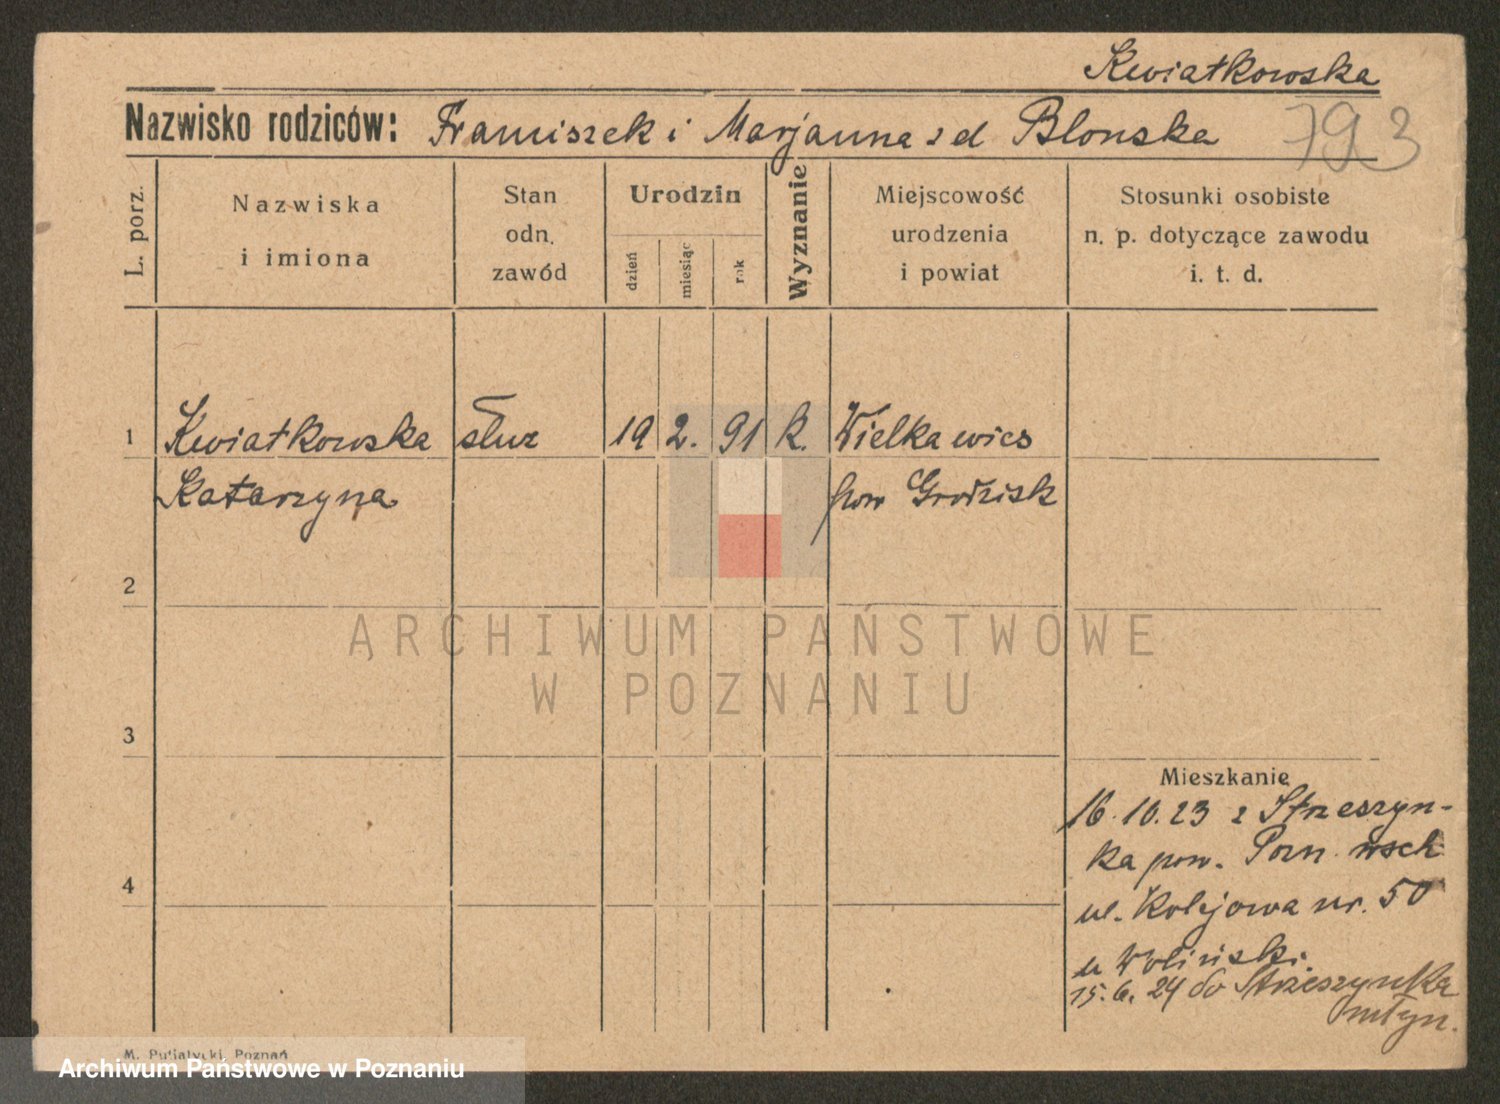 Kwiatkowska
Nazwisko rodziców: Franciszek i Marjanna z d Blonska
793
L. porz.
Nazwiska
i imiona
Stan
odn.
zawód
Urodzin
dzień
miesiąc
rok
Wyznanie
Miejscowość
urodzenia
i powiat
Stosunki osobiste
n. p. dotyczące zawodu
i. t. d.
1 Kwiatkowska służ 19 2. 91 k. Wielkawies
Katarzyna pow Grodzisk
2
ARCHIWUM PAŃSTWOWE
W POZNANIU
3
Mieszkanie
16.10.23 z Strzeszyn-
ka pow. Pozn. wsch
4
ul. Kolejowa nr. 50
u Woliński.
15.6.24 do Strzeszynka
młyn.
M. Putiatycki, Poznań
Archiwum Państwowe w Poznaniu